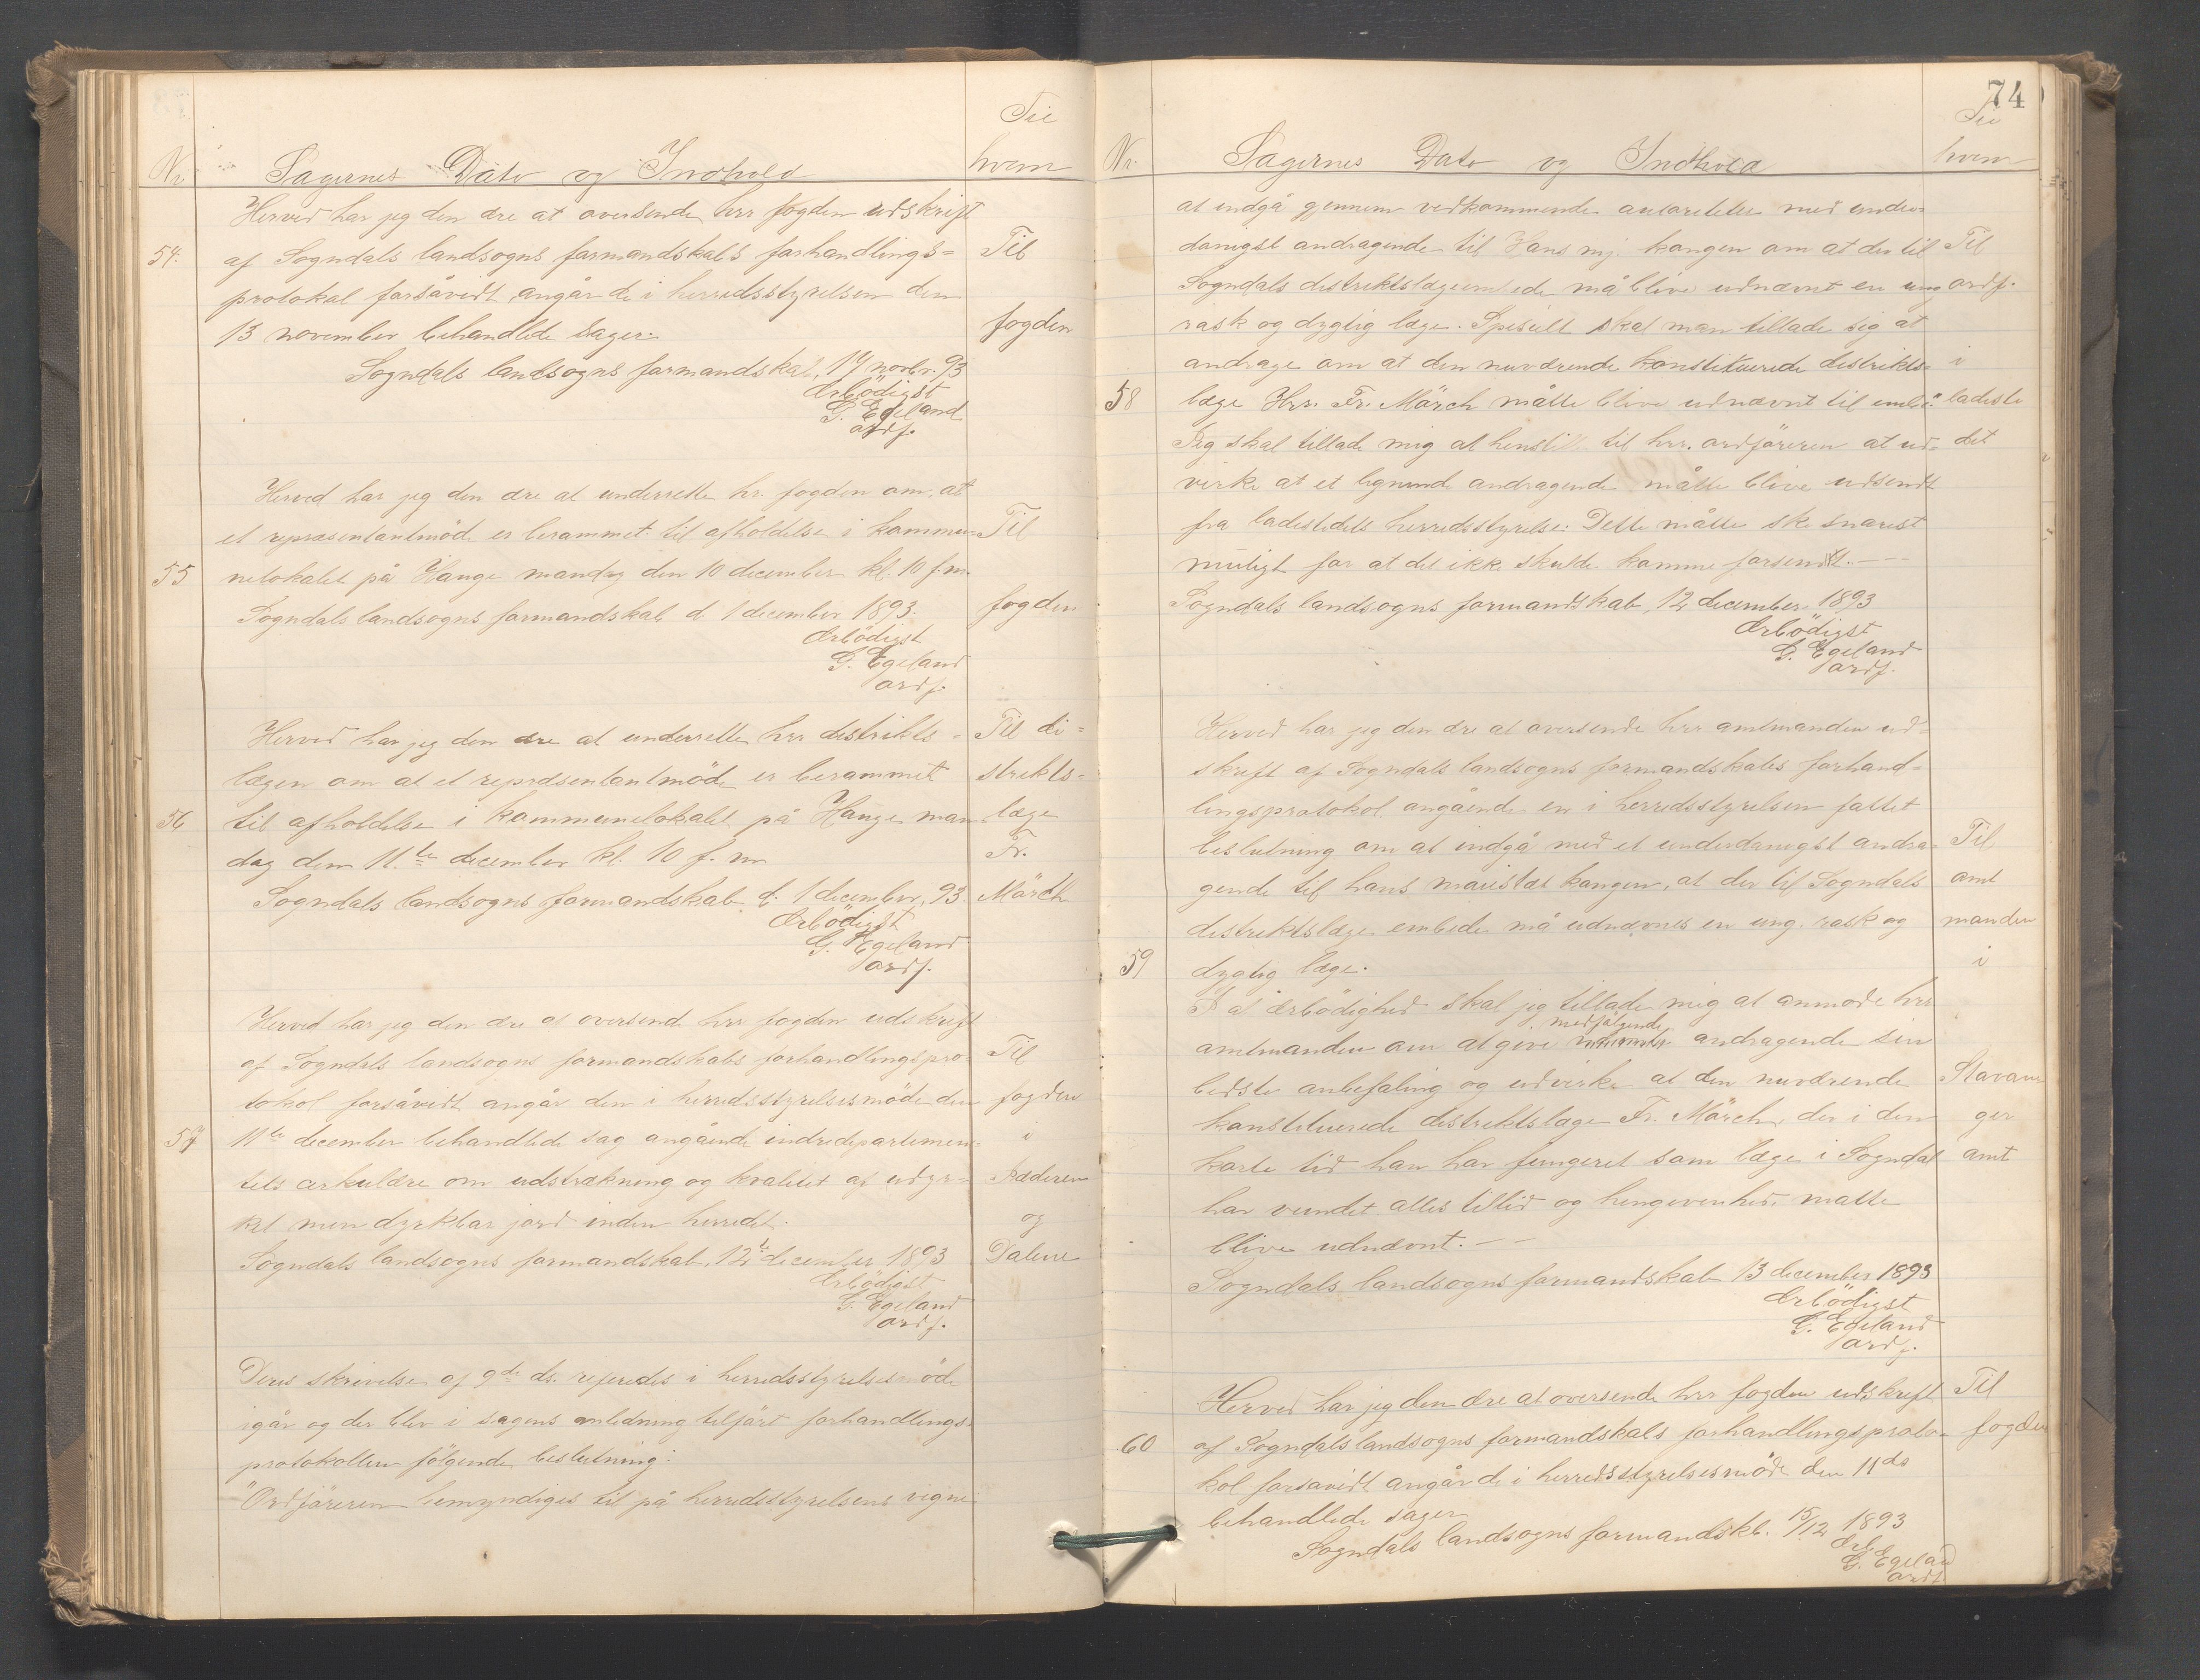 Til
Nr. Sagernes Dato og Indhold hvem
Herved har jeg den ære at oversende hrr fogden udskrift
54. af Sogndals landsogns formandskabs forhandlings= Til
protokol forsåvidt angår de i herredsstyrelsen den
13 november behandlede sager. fogden
Sogndals landsogns formandskab, 14 novbr. 93
Ærbödigst
G. Egeland
ordf.
Herved har jeg den ære at underrette hr. fogden om, at
et repræsentantmöde er berammet til afholdelse i kommu= Til
55 nelokalet på Hauge mandag den 10 december kl. 10 f.m.
Sogndals landsogns formandskab d. 1 december 1893. fogden
Ærbödigst
G. Egeland
ordf.
Herved har jeg den ære at underrette hrr distrikts= Til di=
lægen om at et repræsentantmöde er berammet strikts=
56 til afholdelse i kommunelokalet på Hauge man læge
dag den 11.te december kl. 10 f. m Fr.
Sogndals landsogns formandskab d. 1 december, 93. Mörch
Ærbödigst
G. Egeland
ordf.
Herved har jeg den ære at oversende hrr fogden udskrift
af Sogndals landsogns formandskabs forhandlingspro= Til
tokol forsåvidt angår den i herredsstyrelsesmöde den fogden
57 11te december behandlede sag angående indredepartemen= i
tets cirkulære om udstrækning og kvalitet af udyr= Jæderen
ket men dyrkbar jord inden herredet. og
Sogndals landsogns formandskab, 12te december 1893 Dalene
Ærbödigst
G. Egeland
ordf.
Deres skrivelse af 9de ds. referedes i herredsstyrelsesmöde
igår og der blev i sagens anledning tilfört forhandlings=
protokollen fölgende beslutning:
"Ordföreren bemyndiges til på herredsstyrelsens vegne
74
Til
Nr. Sagernes Dato og Indhold hvem
at indgå gjennem vedkommende autoriteter med under=
danigst andragende til Hans mj. kongen om at der til Til
Sogndals distriktslægeembede må blive udnævnt en ung ordf.
rask og dygtig læge. Spesielt skal man tillade sig at
andrage om at den nuværende konstituerede distrikts= i
58 læge Hrr. Fr. Mörch måtte blive udnævnt til emb." ladeste
Jeg skal tillade mig at henstille til hrr. ordföreren at ud= det
virke at et lignende andragende måtte blive udsendt
fra ladestedets herredsstyrelse. Dette måtte ske snarest
muligt for at det ikke skulde komme forsendt. —
Sogndals landsogns formandskab, 12 december 1893
Ærbödigst
G. Egeland
ordf.
Herved har jeg den ære at oversende hrr amtmanden ud=
skrift af Sogndals landsogns formandskabs forhand=
lingsprotokol angående en i herredsstyrelsen fattet
beslutning om at indgå med et underdanigst andra= Til
gende til hans maiestæt kongen, at der til Sogndals amt
distriktslæge embede må udnævnes en ung, rask og manden
59 dygtig læge. i
I al ærbödighed skal jeg tillade mig at anmode hrr
medfölgende
amtmanden om at give andragende sin
bedste anbefaling og udvirke at den nuværende Stavan
konstituerede distriktslæge Fr. Mörch, der i den ger
korte tid han har fungeret som læge i Sogndal amt
har vundet alles tillid og hengivenhed, måtte
blive udnævnt. —
Sogndals landsogns formandskab 13 december 1893
Ærbödigst
G. Egeland
ordf.
Herved har jeg den ære at oversende hrr fogden udskrift Til
60 af Sogndals landsogns formandskabs forhandlingsproto= fogden
kol forsavidt angår de i herredsstyrelsesmöde den 11de
behandlede sager
Sogndals landsogns formandskb. 15/12 1893
Ærb.
G. Egeland
ordf.